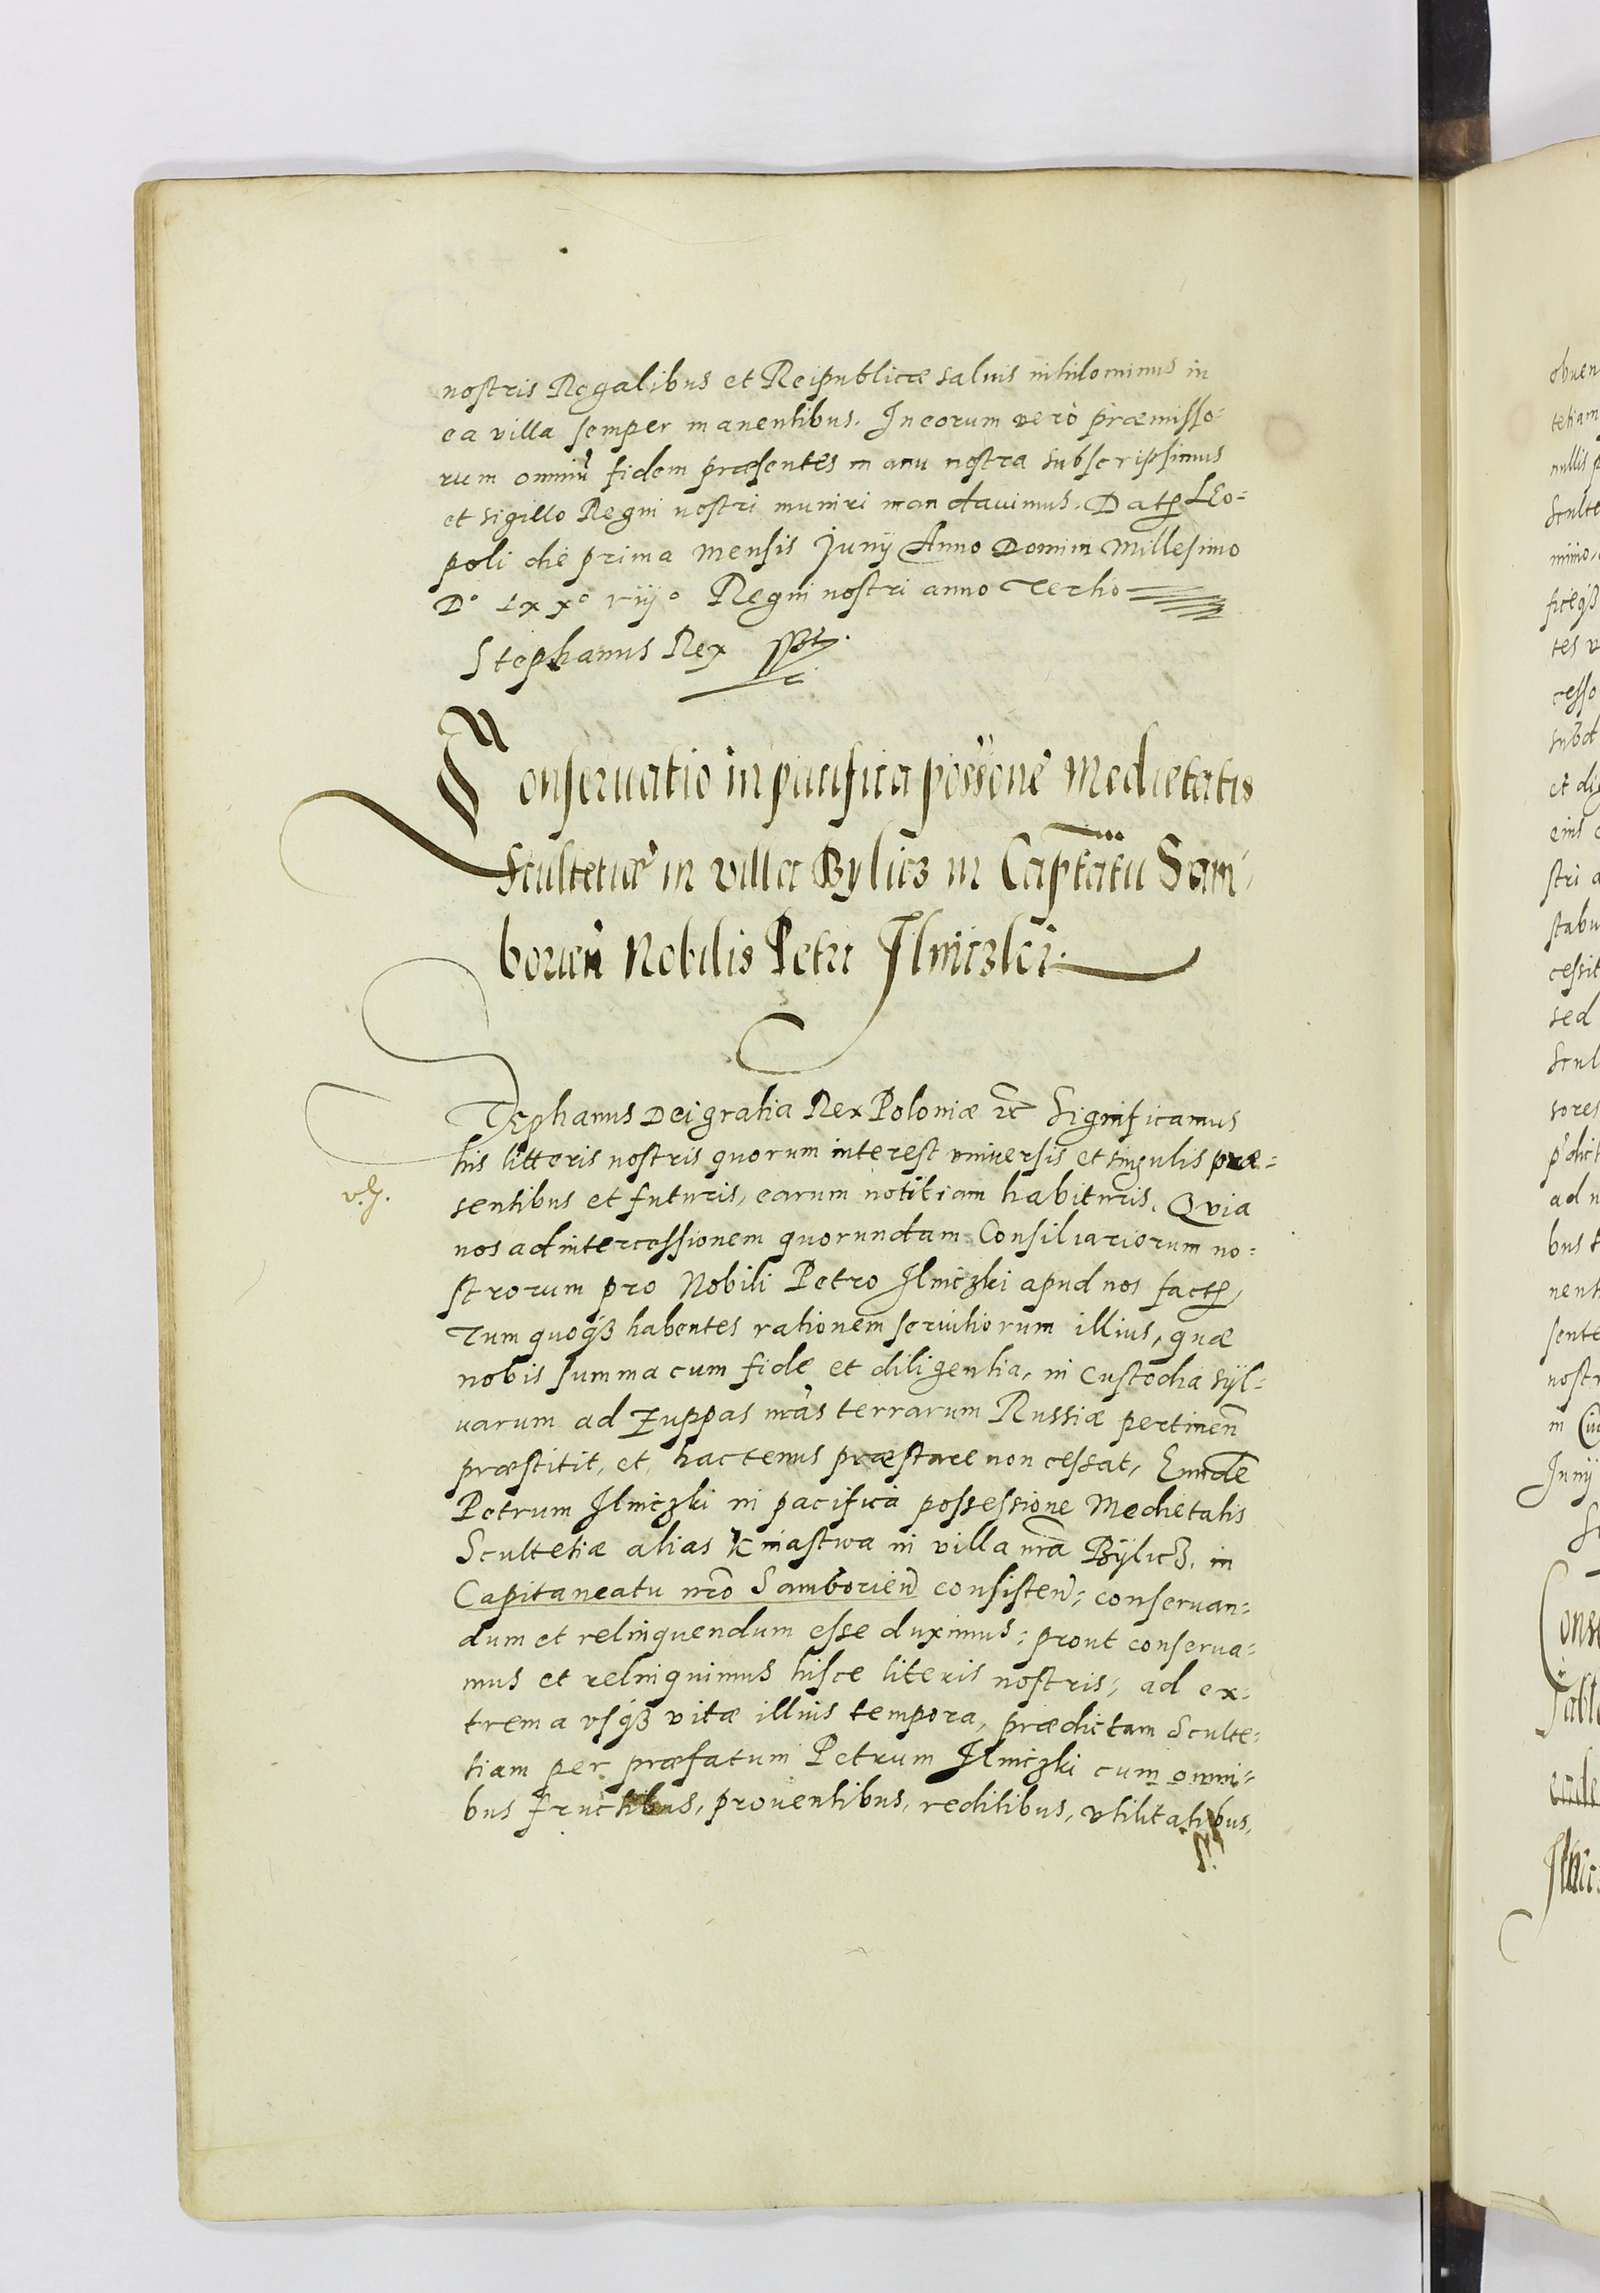 nostris Regalibus et Reipublicæ salvis nihilominus in
ea villa semper manentibus. In eorum verò præmisso-
rum omniũ fidem præsentes manu nostra subscripsimus
et sigillo Regni nostri muniri mandauimus. Datꝭ Leo-
poli die prima mensis Junij Anno Domini Millesimo
Dº Lxxº viijº Regni nostri anno Tertio
Stephanus Rex sspt.
Conseruatio in pacifica possone Medietatis
scultetiæ in villa Bylicz in Captatu Sam-
borien Nobilis Petri Ilniczki.
Stephanus Dei gratia Rex Poloniæ etc Significamus
his litteris nostris quorum interest vniuersis et singulis præ-
sentibus et futuris, earum notitiam habituris. Quia
nos ad intercessionem quorundam Consiliariorum no-
strorum pro Nobili Petro Ilniczki apud nos factꝭ,
Tum quoqꝫ habentes rationem seruitiorum illius, quæ
nobis summa cum fide et diligentia, in custodia syl-
uarum ad Zuppas nras terrarum Russiæ pertinen
præstitit, et hactenus præstare non cessat, Eunde
Petrum Ilniczki in pacifica possessione Medietatis
Scultetiæ alias Kniastwa in villa nra Bylicz. in
Capitaneatu nro Samborien consisten, conseruan-
dum et relinquendum esse duximus; prout conserua-
mus et relinquimus hisce literis nostris, ad ex-
trema vsqꝫ vitæ illius tempora, prædictam Sculte-
tiam per præfatum Petrum Ilniczki cum omni-
bus fructibus, prouentibus, reditibus, vtilitatibus,
obuen
tetiam
nullis
Sculte
ficeqꝫ
tes
cesso
subd
et
eius
stri
stabu
cessit
sed
Scul
sores
ad
bus
nent
sente
nostr
in
Junij
Conse